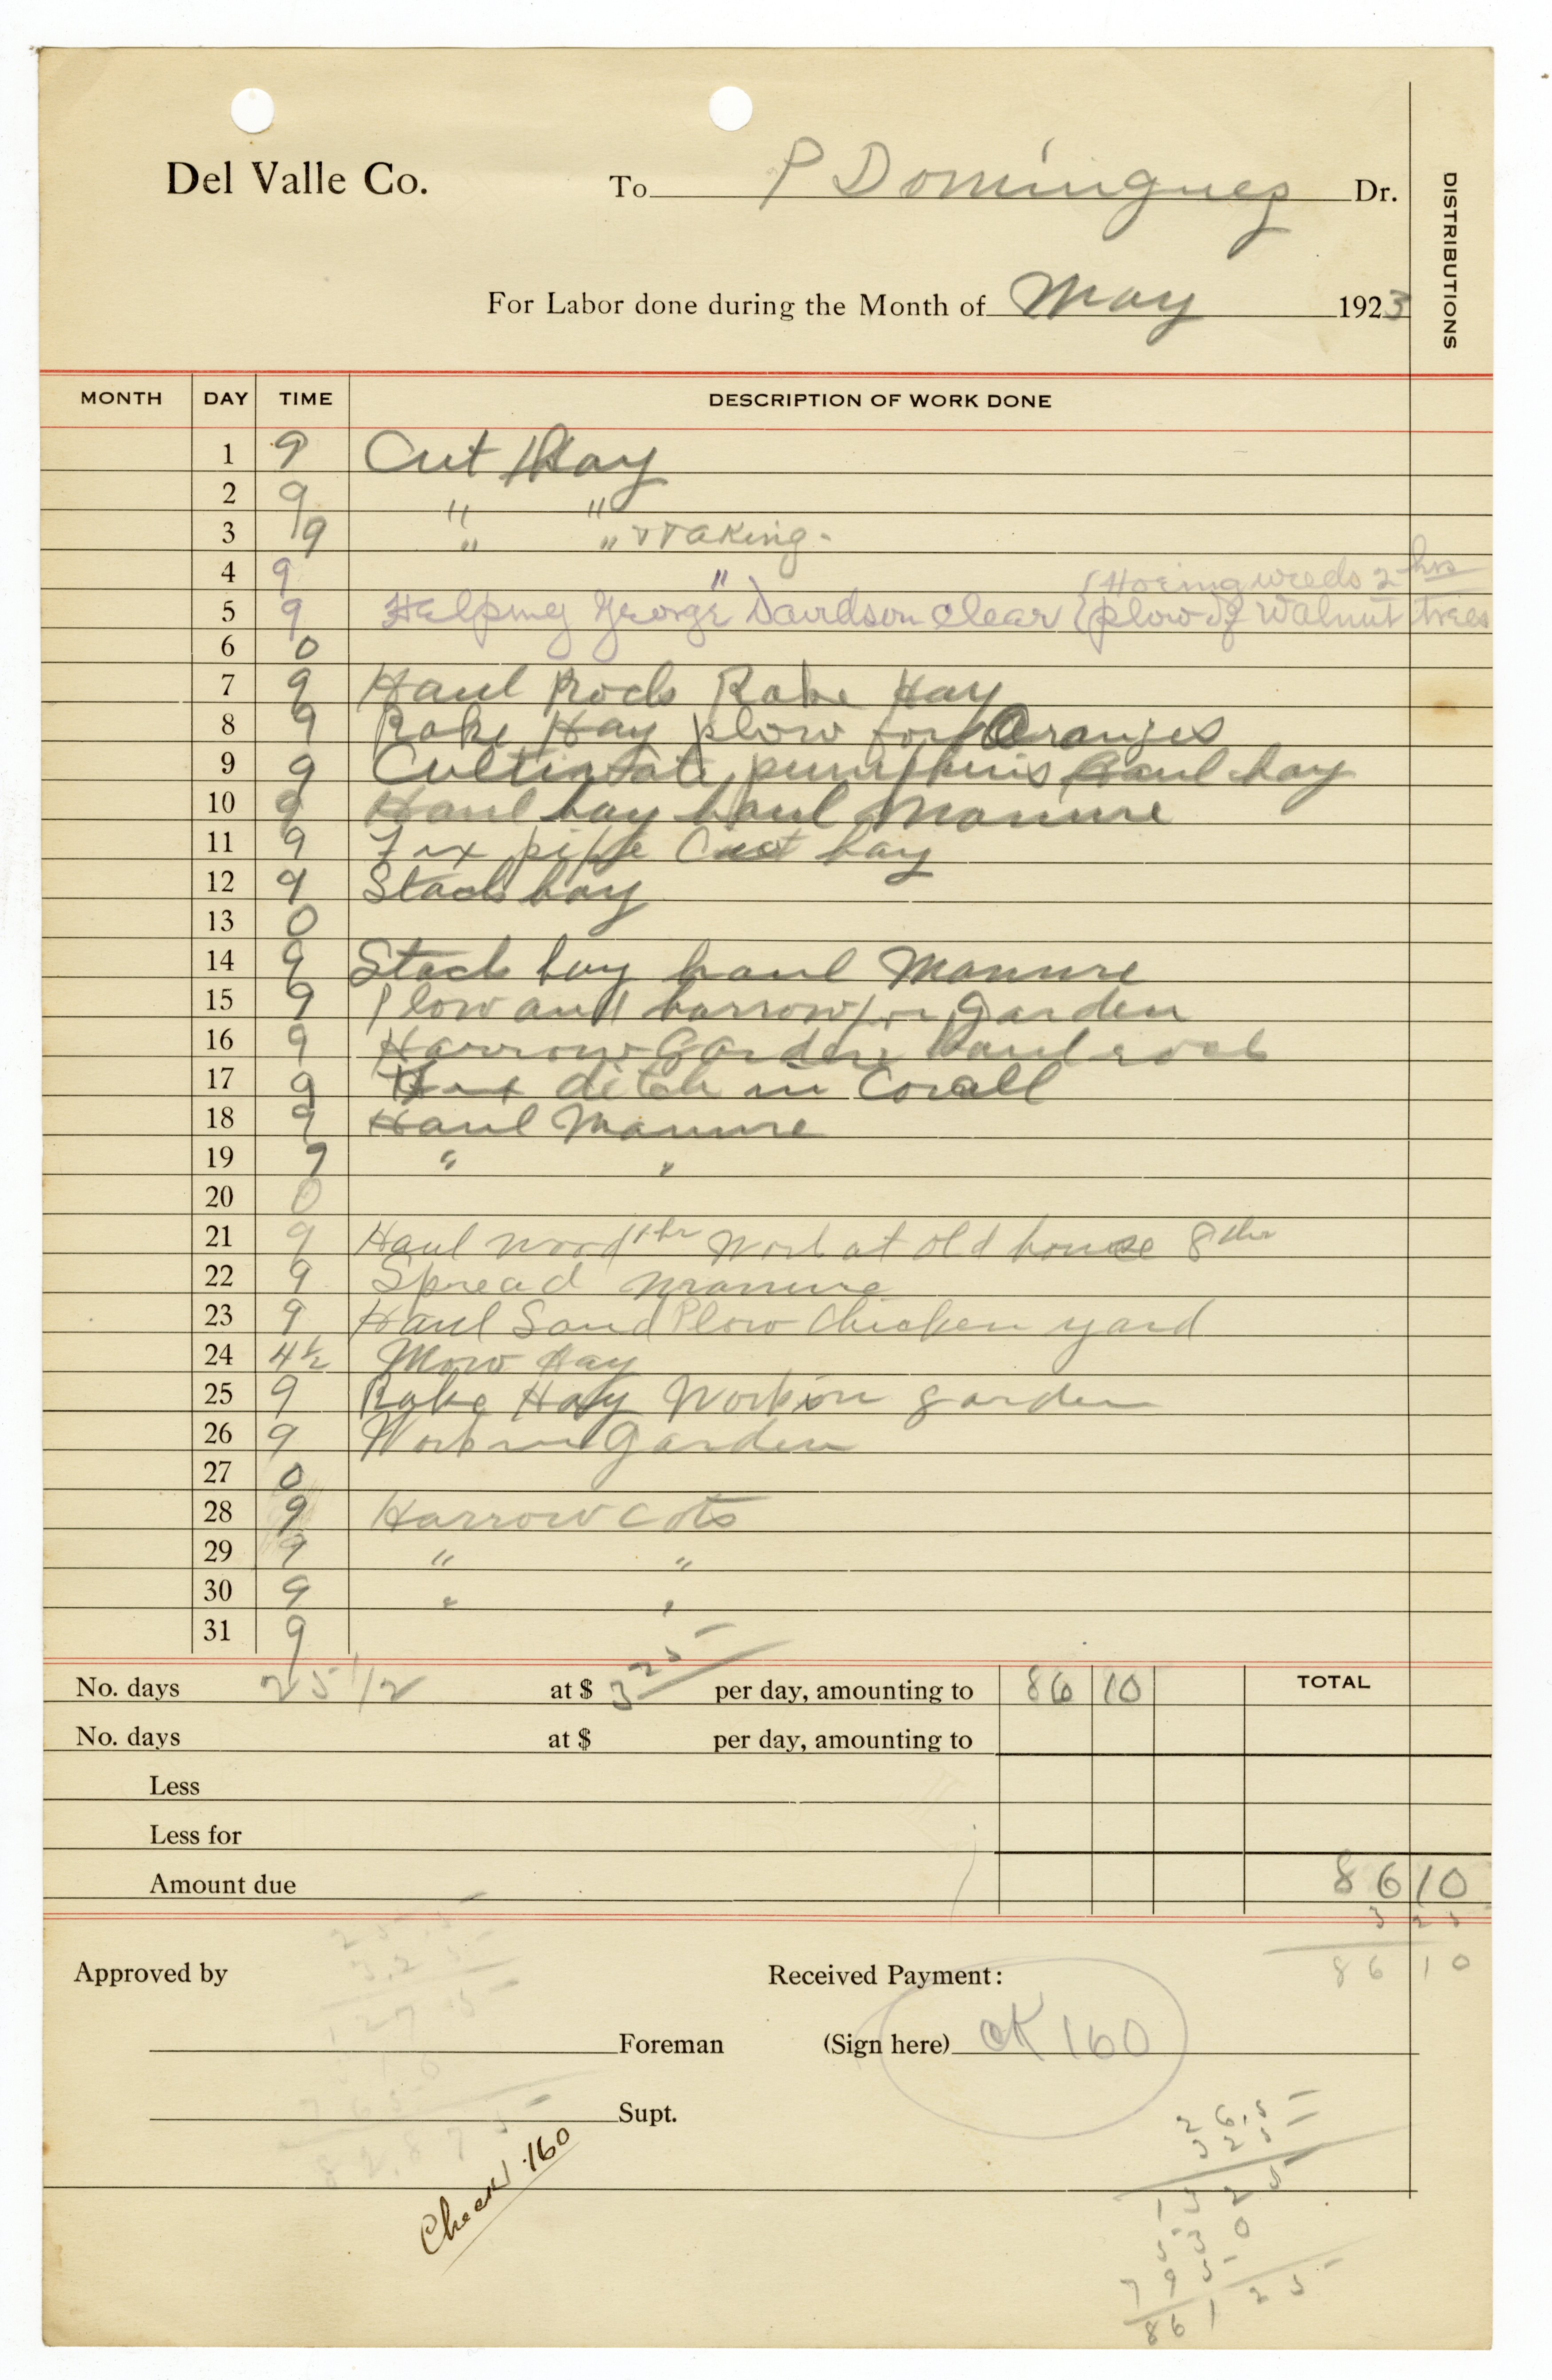 Del Valle Co. To P Dominguez Dr.
DISTRIBUTIONS
For Labor done during the Month of May 1923
MONTH DAY TIME DESCRIPTION OF WORK DONE
1 9 Cut Hay
2 9 " "
3 9 " " + raking.
4 9 " {Hoeing weeds 2 hrs
5 9 Helping George Davidson clear {plow of Walnut trees
6 0
7 9 Haul Rock Rake Hay
8 9 Rake Hay plow for Oranges
9 9 Cultivate pumpkins Haul hay
10 9 Haul hay haul Manure
11 9 Fix pipe Cut hay
12 9 Stack hay
13 0
14 9 Stack hay haul Manure
15 9 Plow and harrow for garden
16 9 Harrow Garden haul
17 9 Fix ditch in Corall
18 9 Haul Manure
19 9 " "
20 0
21 9 Haul wood 1 hr Work at old house 8 hr
22 9 Spread manure
23 9 Haul Sand Plow Chicken yard
24 4 1/2 Mow Hay
25 9 Rake Hay Work in garden
26 9 Work in Garden
27 0
28 9 Harrow Cots
29 9 " "
30 9 " "
31 9
No. days 25 1/2 at $ 3 25 per day, amounting to 86 10 TOTAL
No. days at $ per day, amounting to
Less
Less for
Amount due 86 10
3 25
86 10
25.5
3.25
1275
510
765
82.875
Approved by Received Payment:
Foreman (Sign here) CK 160
Supt.
Check 160
26.5
325
1325
530
795
86125